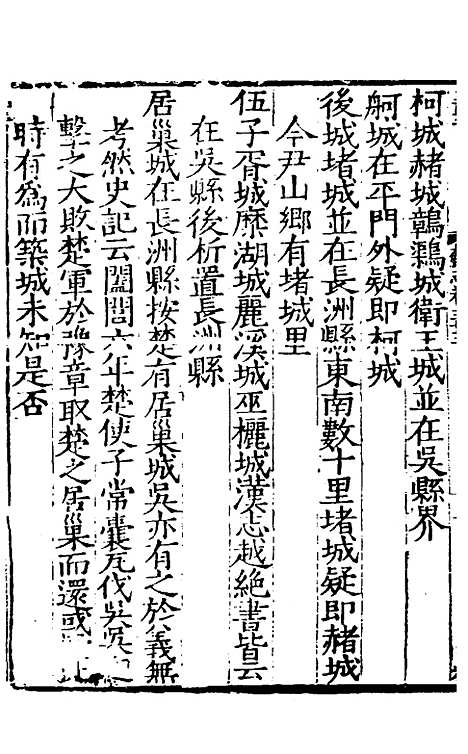 柯城赭城鶄鸘城衛王城並在吳縣界
舸城在平門外疑即柯城
後城堵城並在長洲縣東南數十里堵城疑即赭城
今尹山鄉有堵城里
伍子胥城麋湖城麗溪城巫欐城漢志越絕書皆云
在吳縣後析置長洲縣
居巢城在長洲縣按楚有居巢城吳亦有之於義無
考然史記云闔閭六年楚使子常囊瓦伐吳
擊之大敗楚軍於豫章取楚之居巢而還或
時有為而築城未知是否